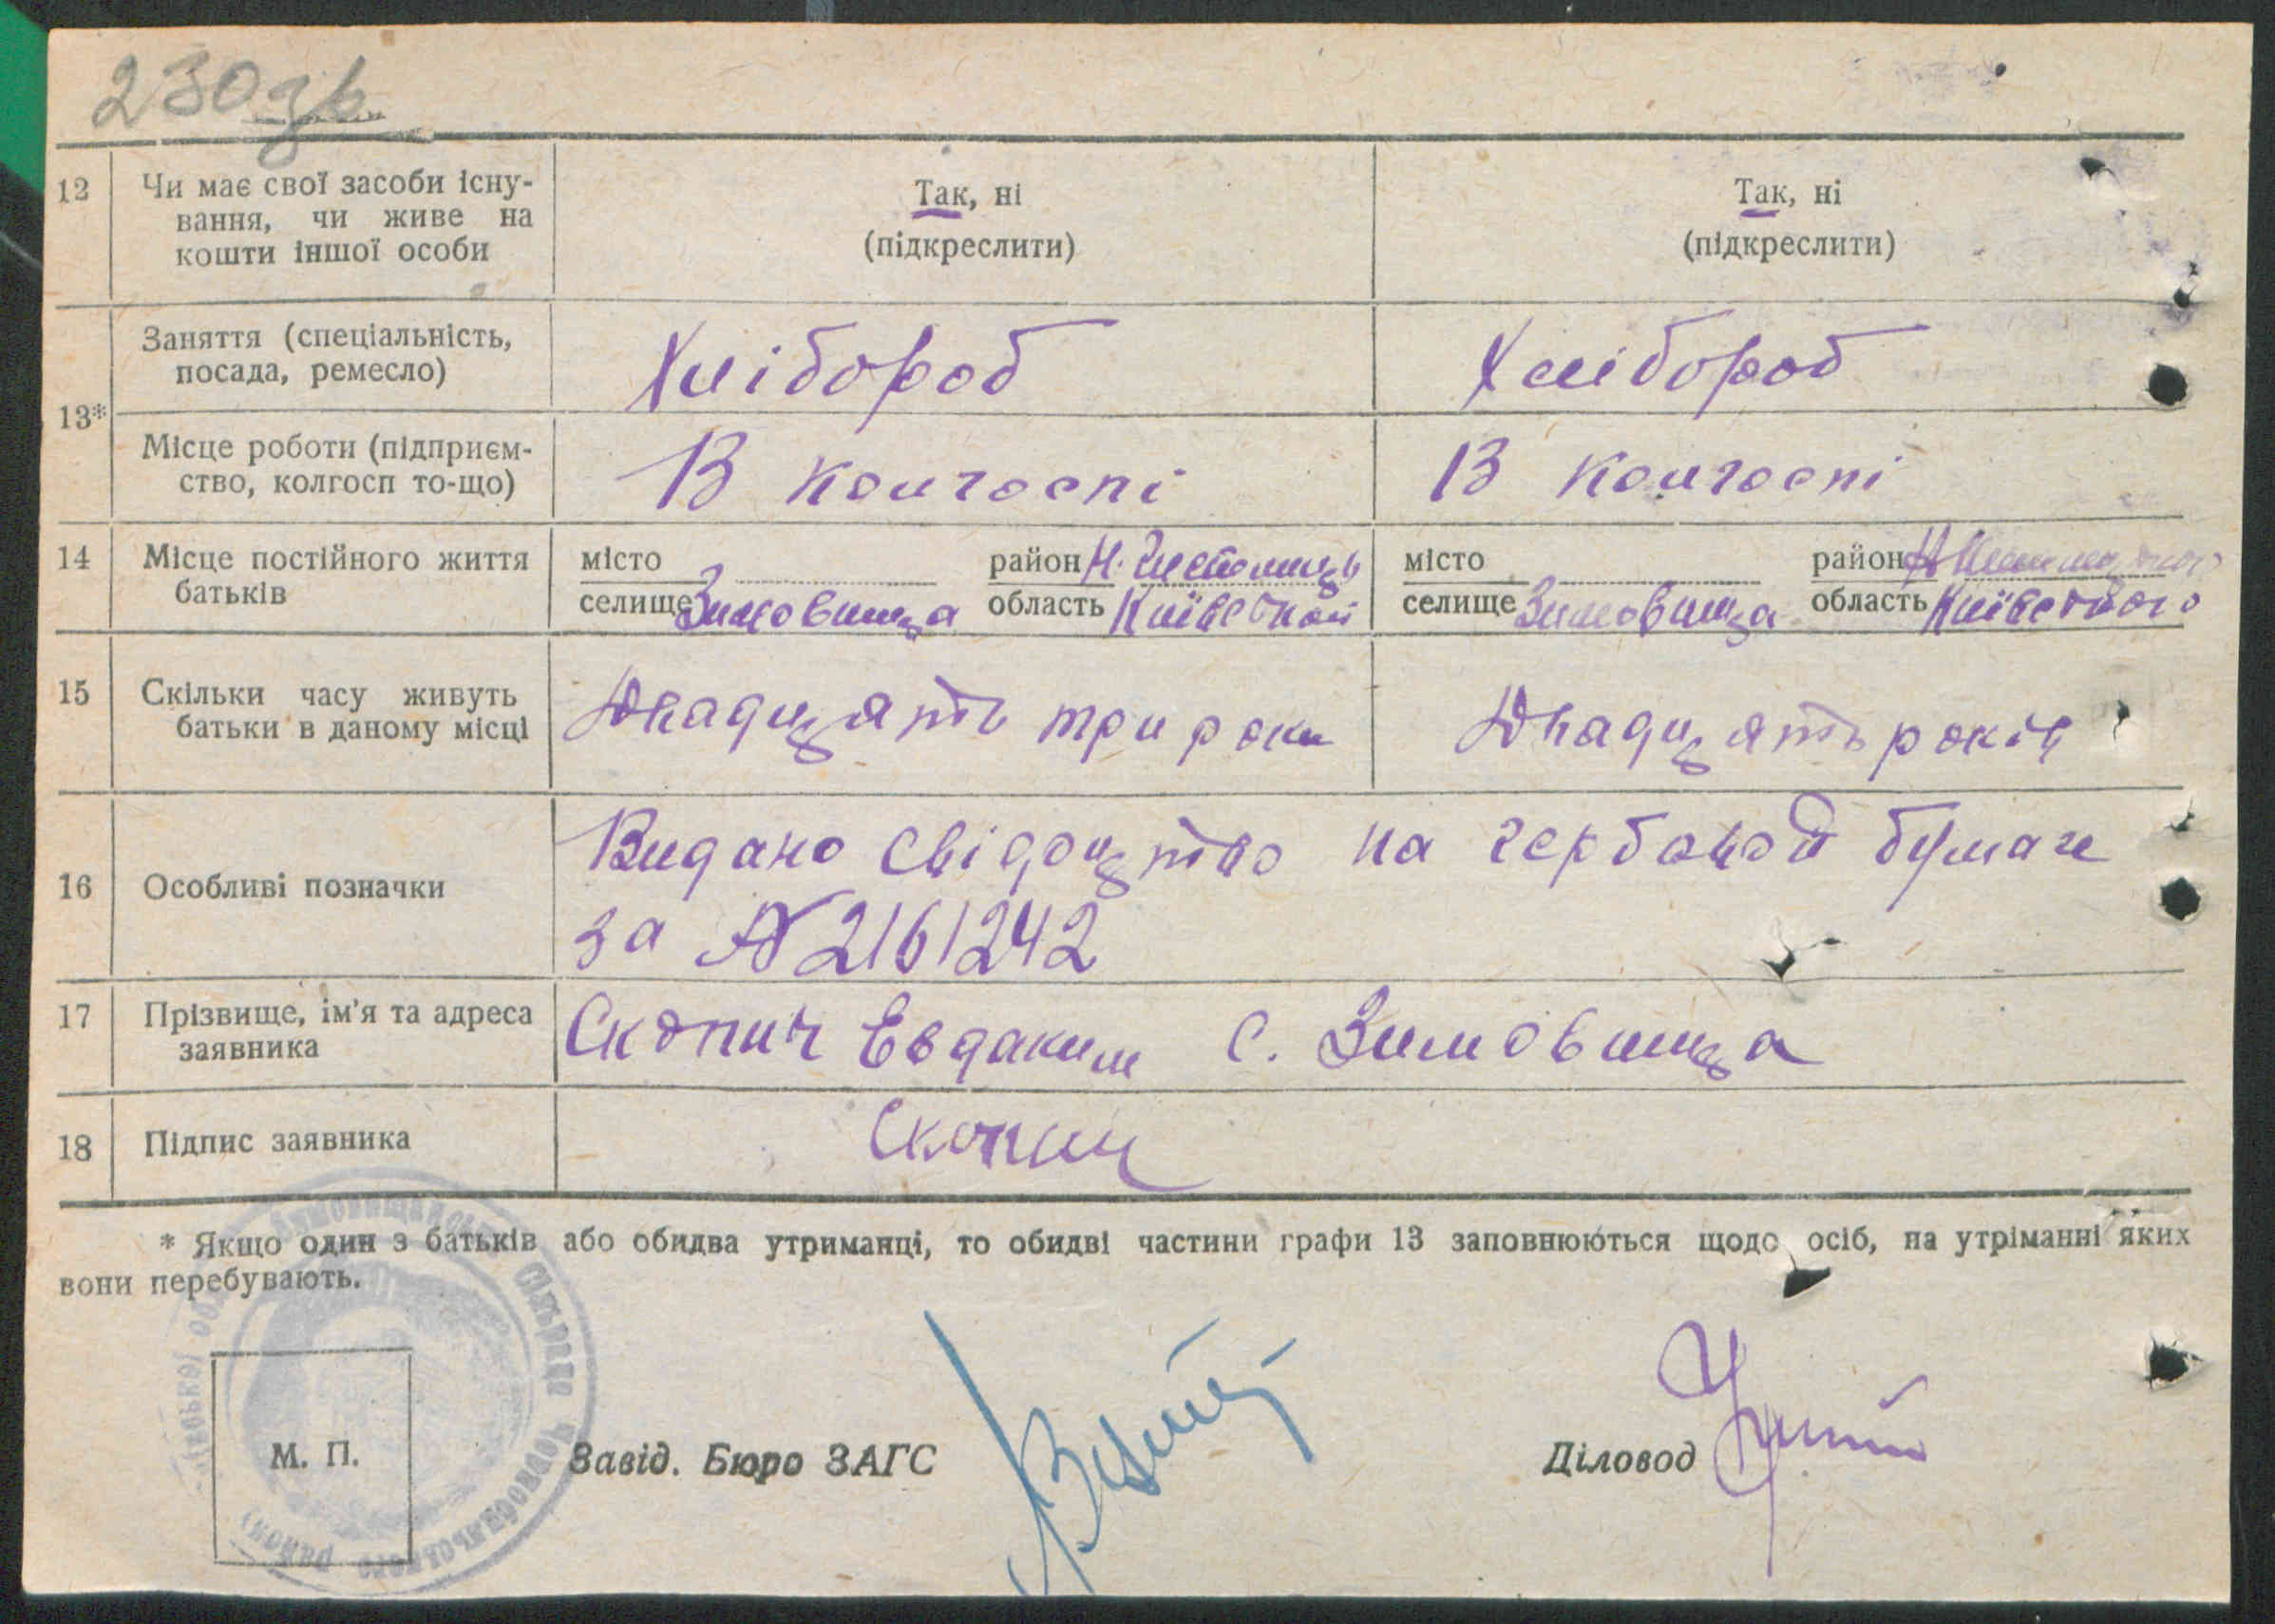 230 зв.
12 Чи має свої засоби існу-
вання, чи живе на
кошти іншої особи
Так, ні
(підкреслити)
Так, ні
(підкреслити)
13*
Заняття (спеціальність,
посада, ремесло)
Хлібороб
Хлібороб
Місце роботи (підприєм-
ство, колгосп то-що)
В колгоспі
В колгоспі
14 Місце постійного життя
батьків
місто
район Н.
селище Зимовища
область Київської
місто
район
селище Зимовища
область Київского
15 Скільки часу живуть
батьки в даному місці
Двадцять три роки
Двадцять років
16 Особливі позначки
Видано свідоцтво на гербовой бумаге
за № 2161242
17 Прізвище, ім'я та адреса
заявника
Скопич Евдаким с. Зимовища
18 Підпис заявника
Скопич
* Якщо один з батьків або обидва утриманці, то обидві частини графи 13 заповнюються щодо осіб, на утріманні яких
вони перебувають.
М. П.
Завід. Бюро ЗАГС
Діловод